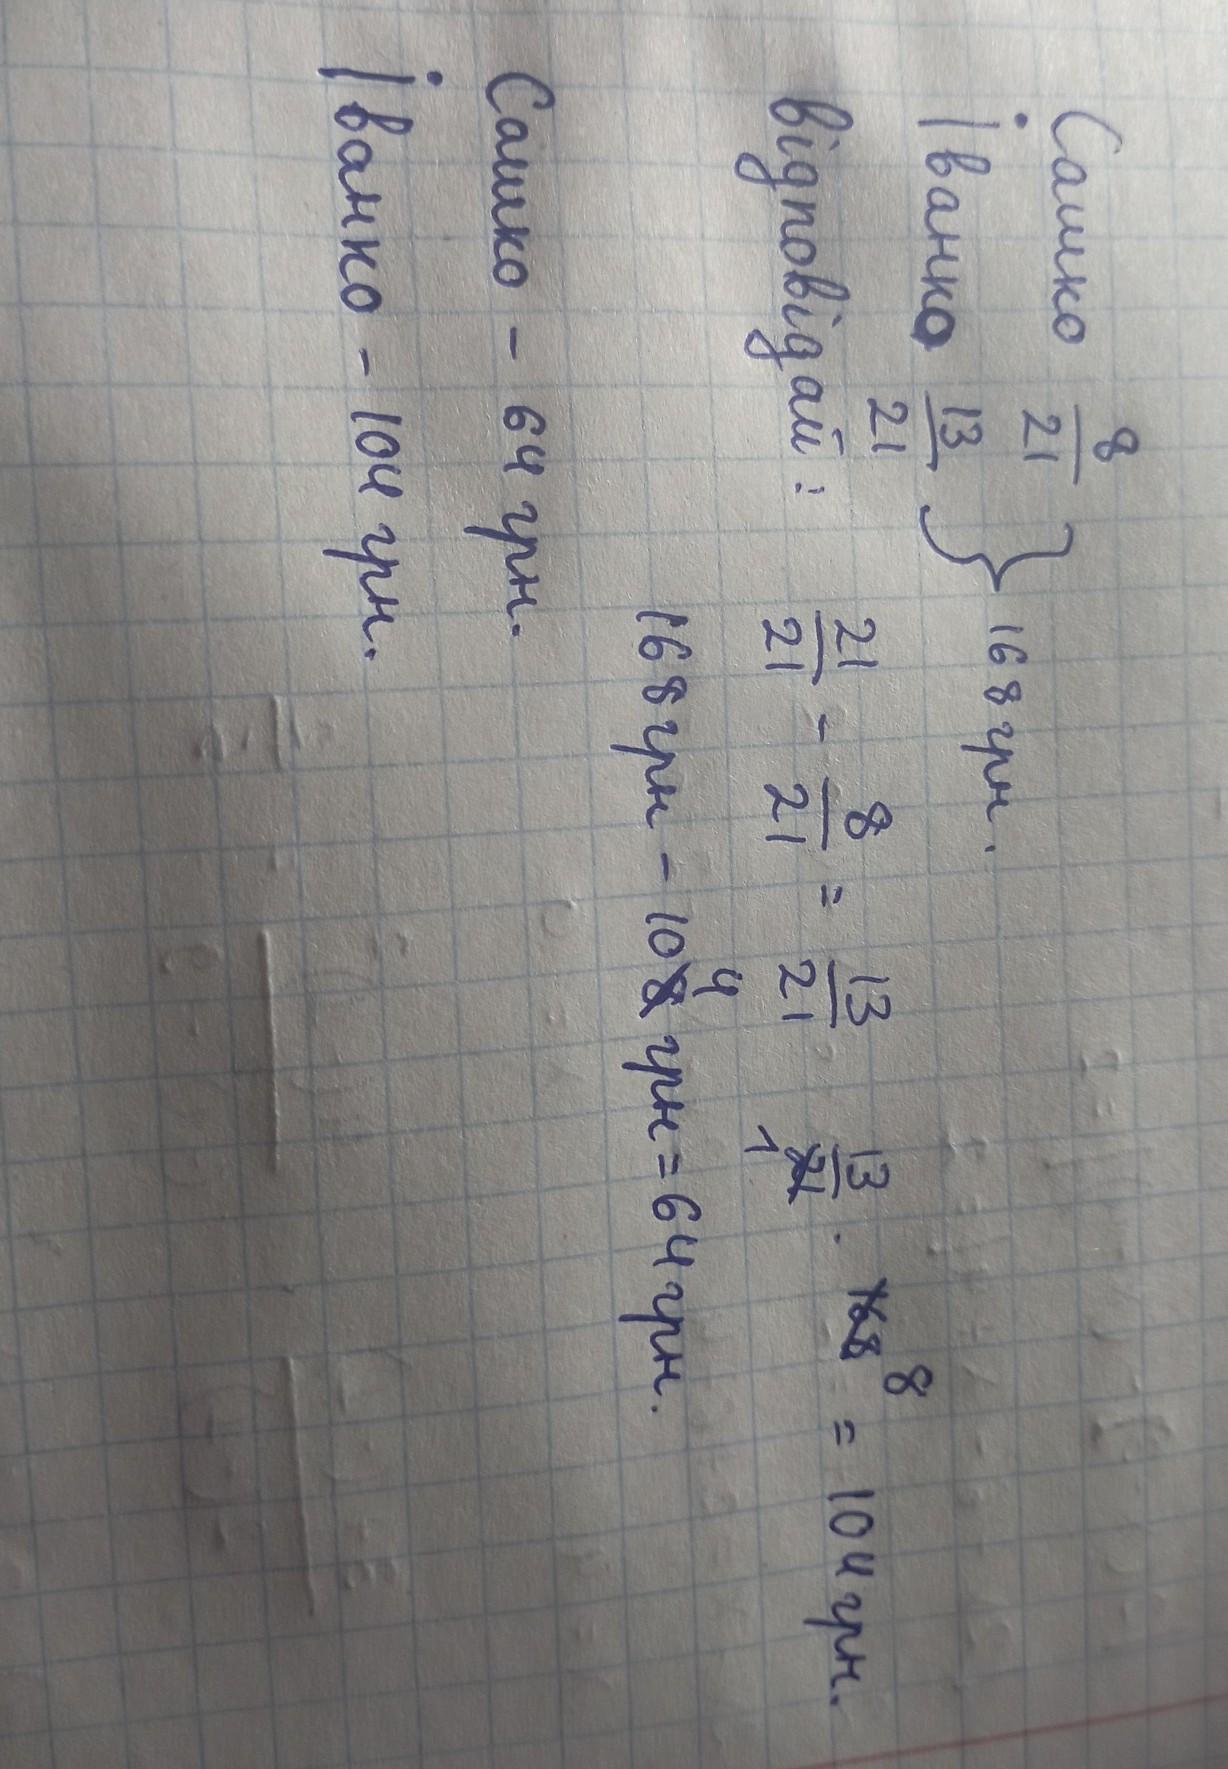 Сашко 8/21
Іванко 13/21 } 168 грн.
відповідай:
21/21 - 8/21 = 13/21 13/21 1 · 168 8 = 104 грн.
168 грн - 108 4 грн = 64 грн.
Сашко - 64 грн.
Іванко - 104 грн.